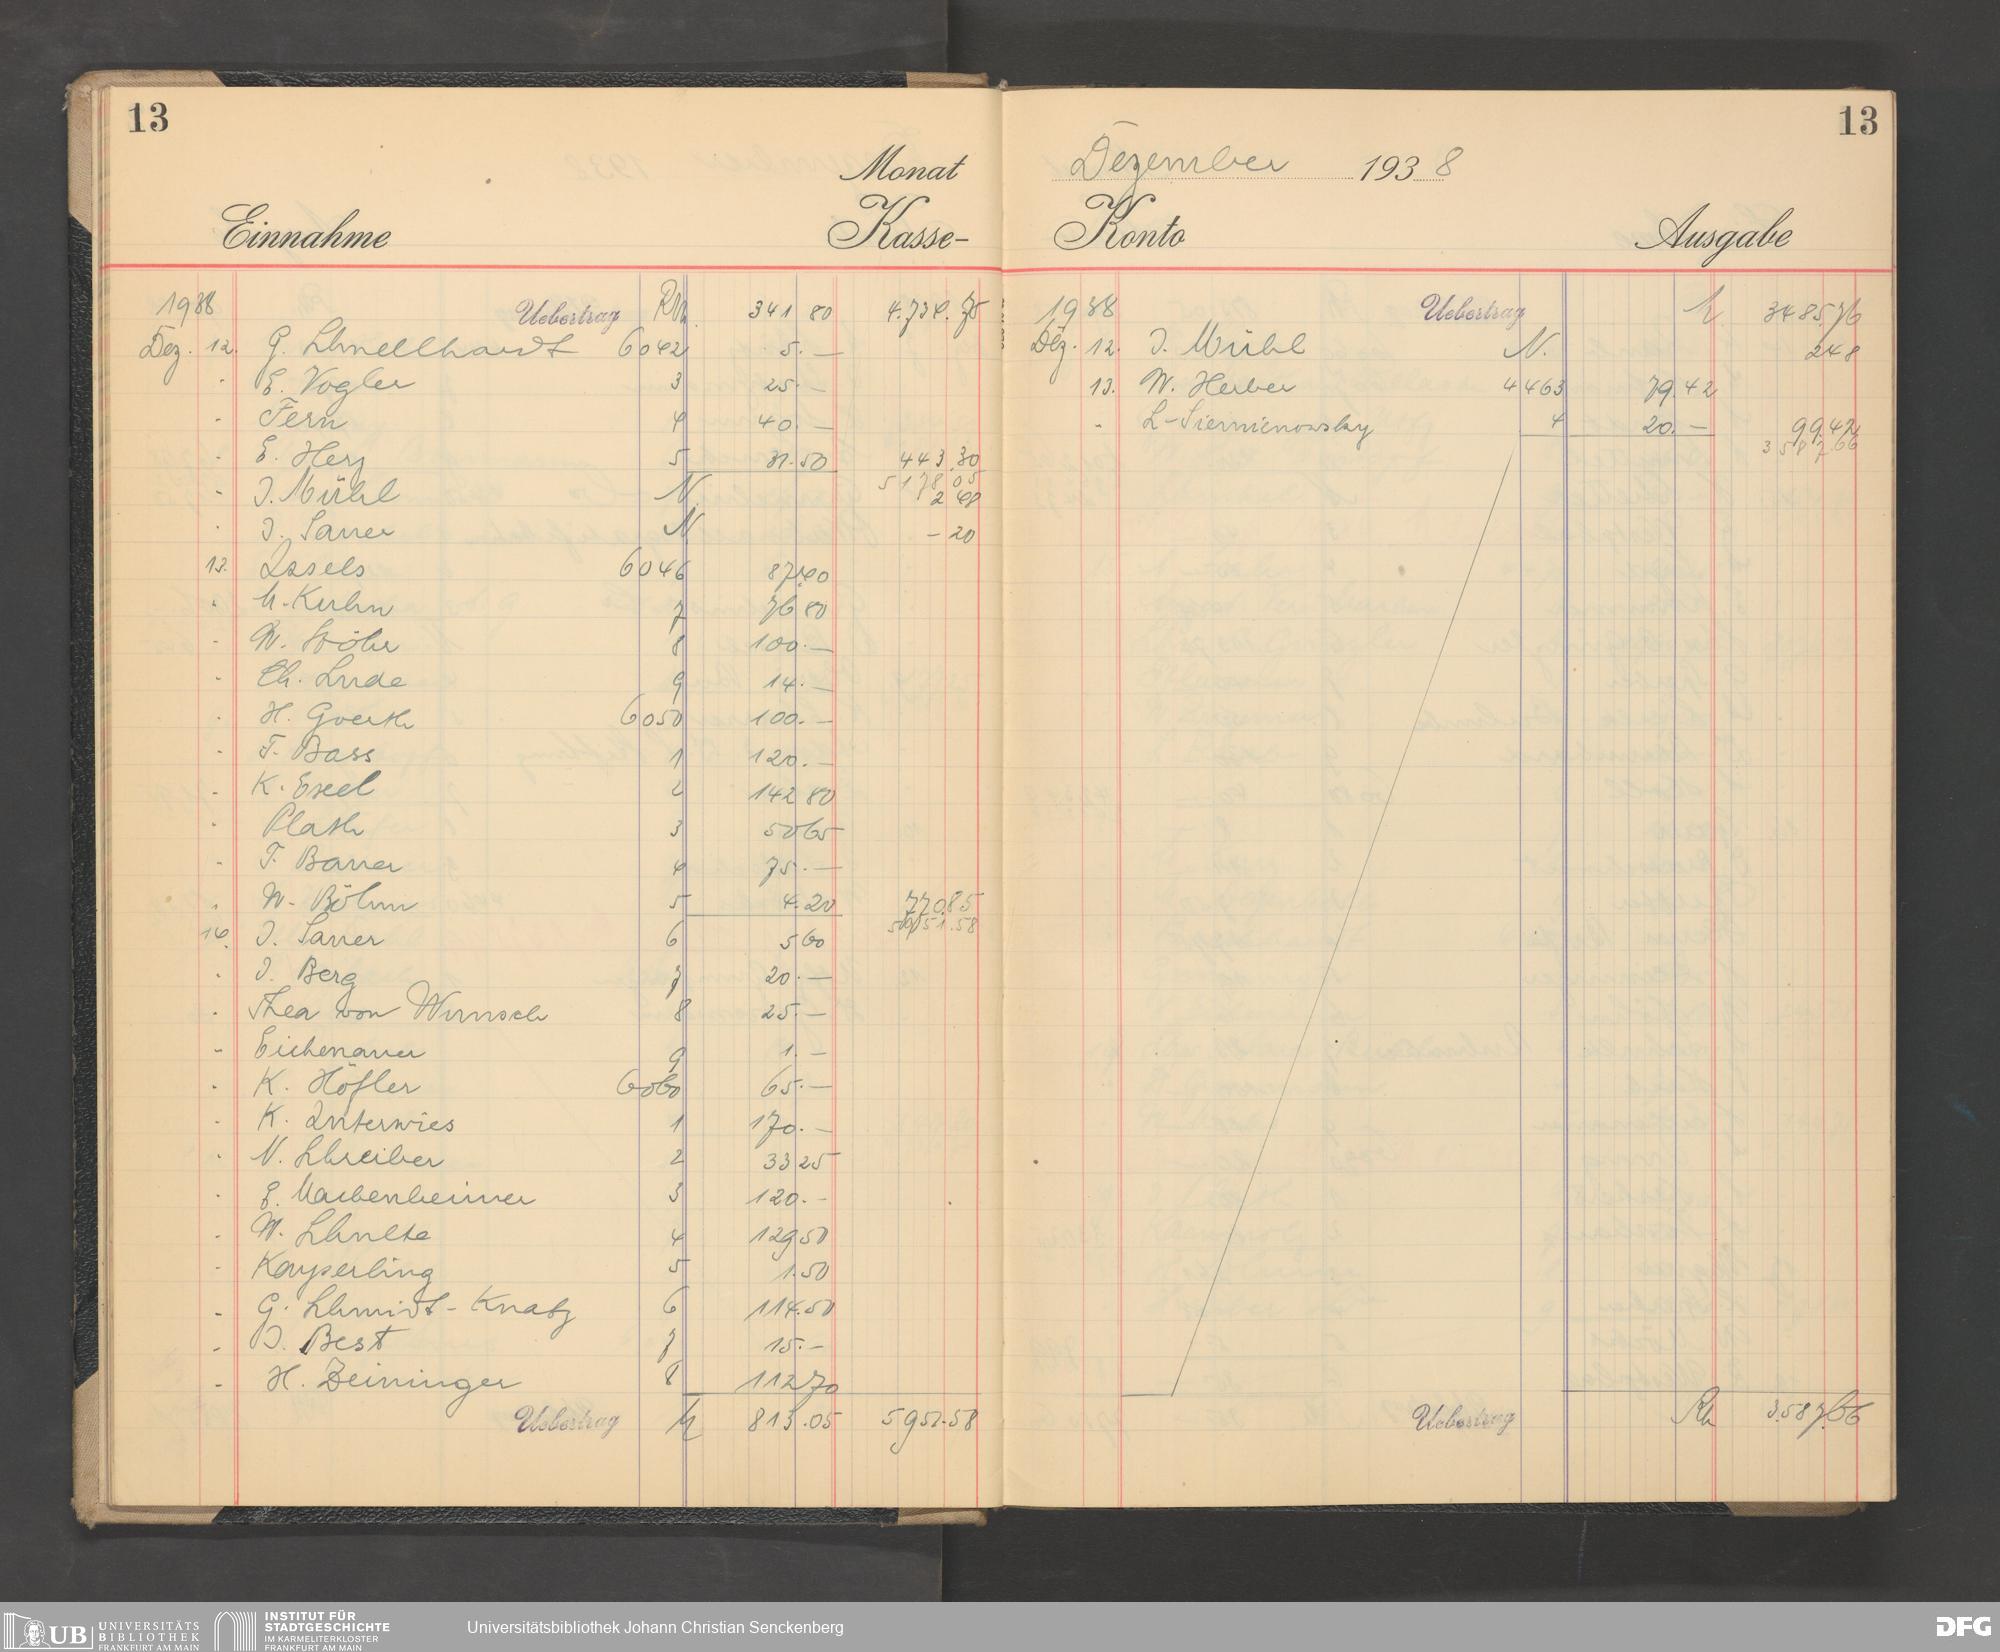 13
Monat
Einnahme Kasse-
1938 Uebertrag RM 341 80 4.734.75
Dez. 12. G. Schnellhardt 6042 5.—
" E. Vogler 3 25.—
" Fern 4 40.—
" E. Herz 5 31.50 443.30
5178 05
" J. Mühl N. 2 48
" J. Sauer N. - 20
13. Issels 6046 87.40
" M. Kuhn 7 76 80
" W. Stöhr 8 100.—
" Ch. Lude 9 14.—
" H. Goerth 6050 100.—
" F. Bass 1 120.—
" K. Exel 2 142 80
" Plath 3 50 65
" F. Bauer 4 75.—
" W. Böhm 5 4.20 770.85
5951.58
14. J. Sauer 6 5 60
" J. Berg 7 20.—
" Thea von Wunsch 8 25.—
" Eichenauer 9 1.—
" K. Höfler 6060 65.—
" K. Unterwies 1 170.—
" N. Schreiber 2 33 25
" E. Machenheimer 3 120.-
" W. Schulte 4 129 50
" Kayserling 5 1.50
" G. Schmidt-Knatz 6 114.50
" J. Best 7 15.—
" H. Deininger 8 112 70
Uebertrag 813.05 5951.58
13
Dezember 1938
Konto Ausgabe
1938 Uebertrag 3485.76
Dez. 12. J. Mühl N. 2 48
13. W. Herber 4463 79.42
" L-Siemienowsky 4 20.— 99.42
3587.66
Uebertrag RM 3.587.66
UB UNIVERSITÄTS
BIBLIOTHEK
FRANKFURT AM MAIN
INSTITUT FÜR
STADTGESCHICHTE
IM KARMELITERKLOSTER
FRANKFURT AM MAIN
Universitätsbibliothek Johann Christian Senckenberg
DFG